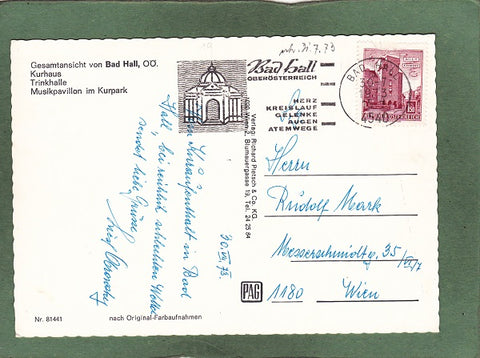 Gesamtansicht von Bad Hall, OÖ.
Kurhaus
Trinkhalle
Musikpavillon im Kurpark
31.7.73
Bad Hall
OBERÖSTERREICH
HERZ
KREISLAUF
GELENKE
AUGEN
ATEMWEGE
BAD
4540
Kuraufenthalt in Bad
Hall bei reichlich schlechtem Wetter
sendet liebe Grüsse
30. VII 73.
Verlag: Richard Pietsch & Co. KG.
Wien 2, Blumauergasse 19, Tel. 24 25 84
Herrn
Rudolf Mark
Messerschmidtg. 35/
1180 Wien
PAG
Nr. 81441
nach Original-Farbaufnahmen